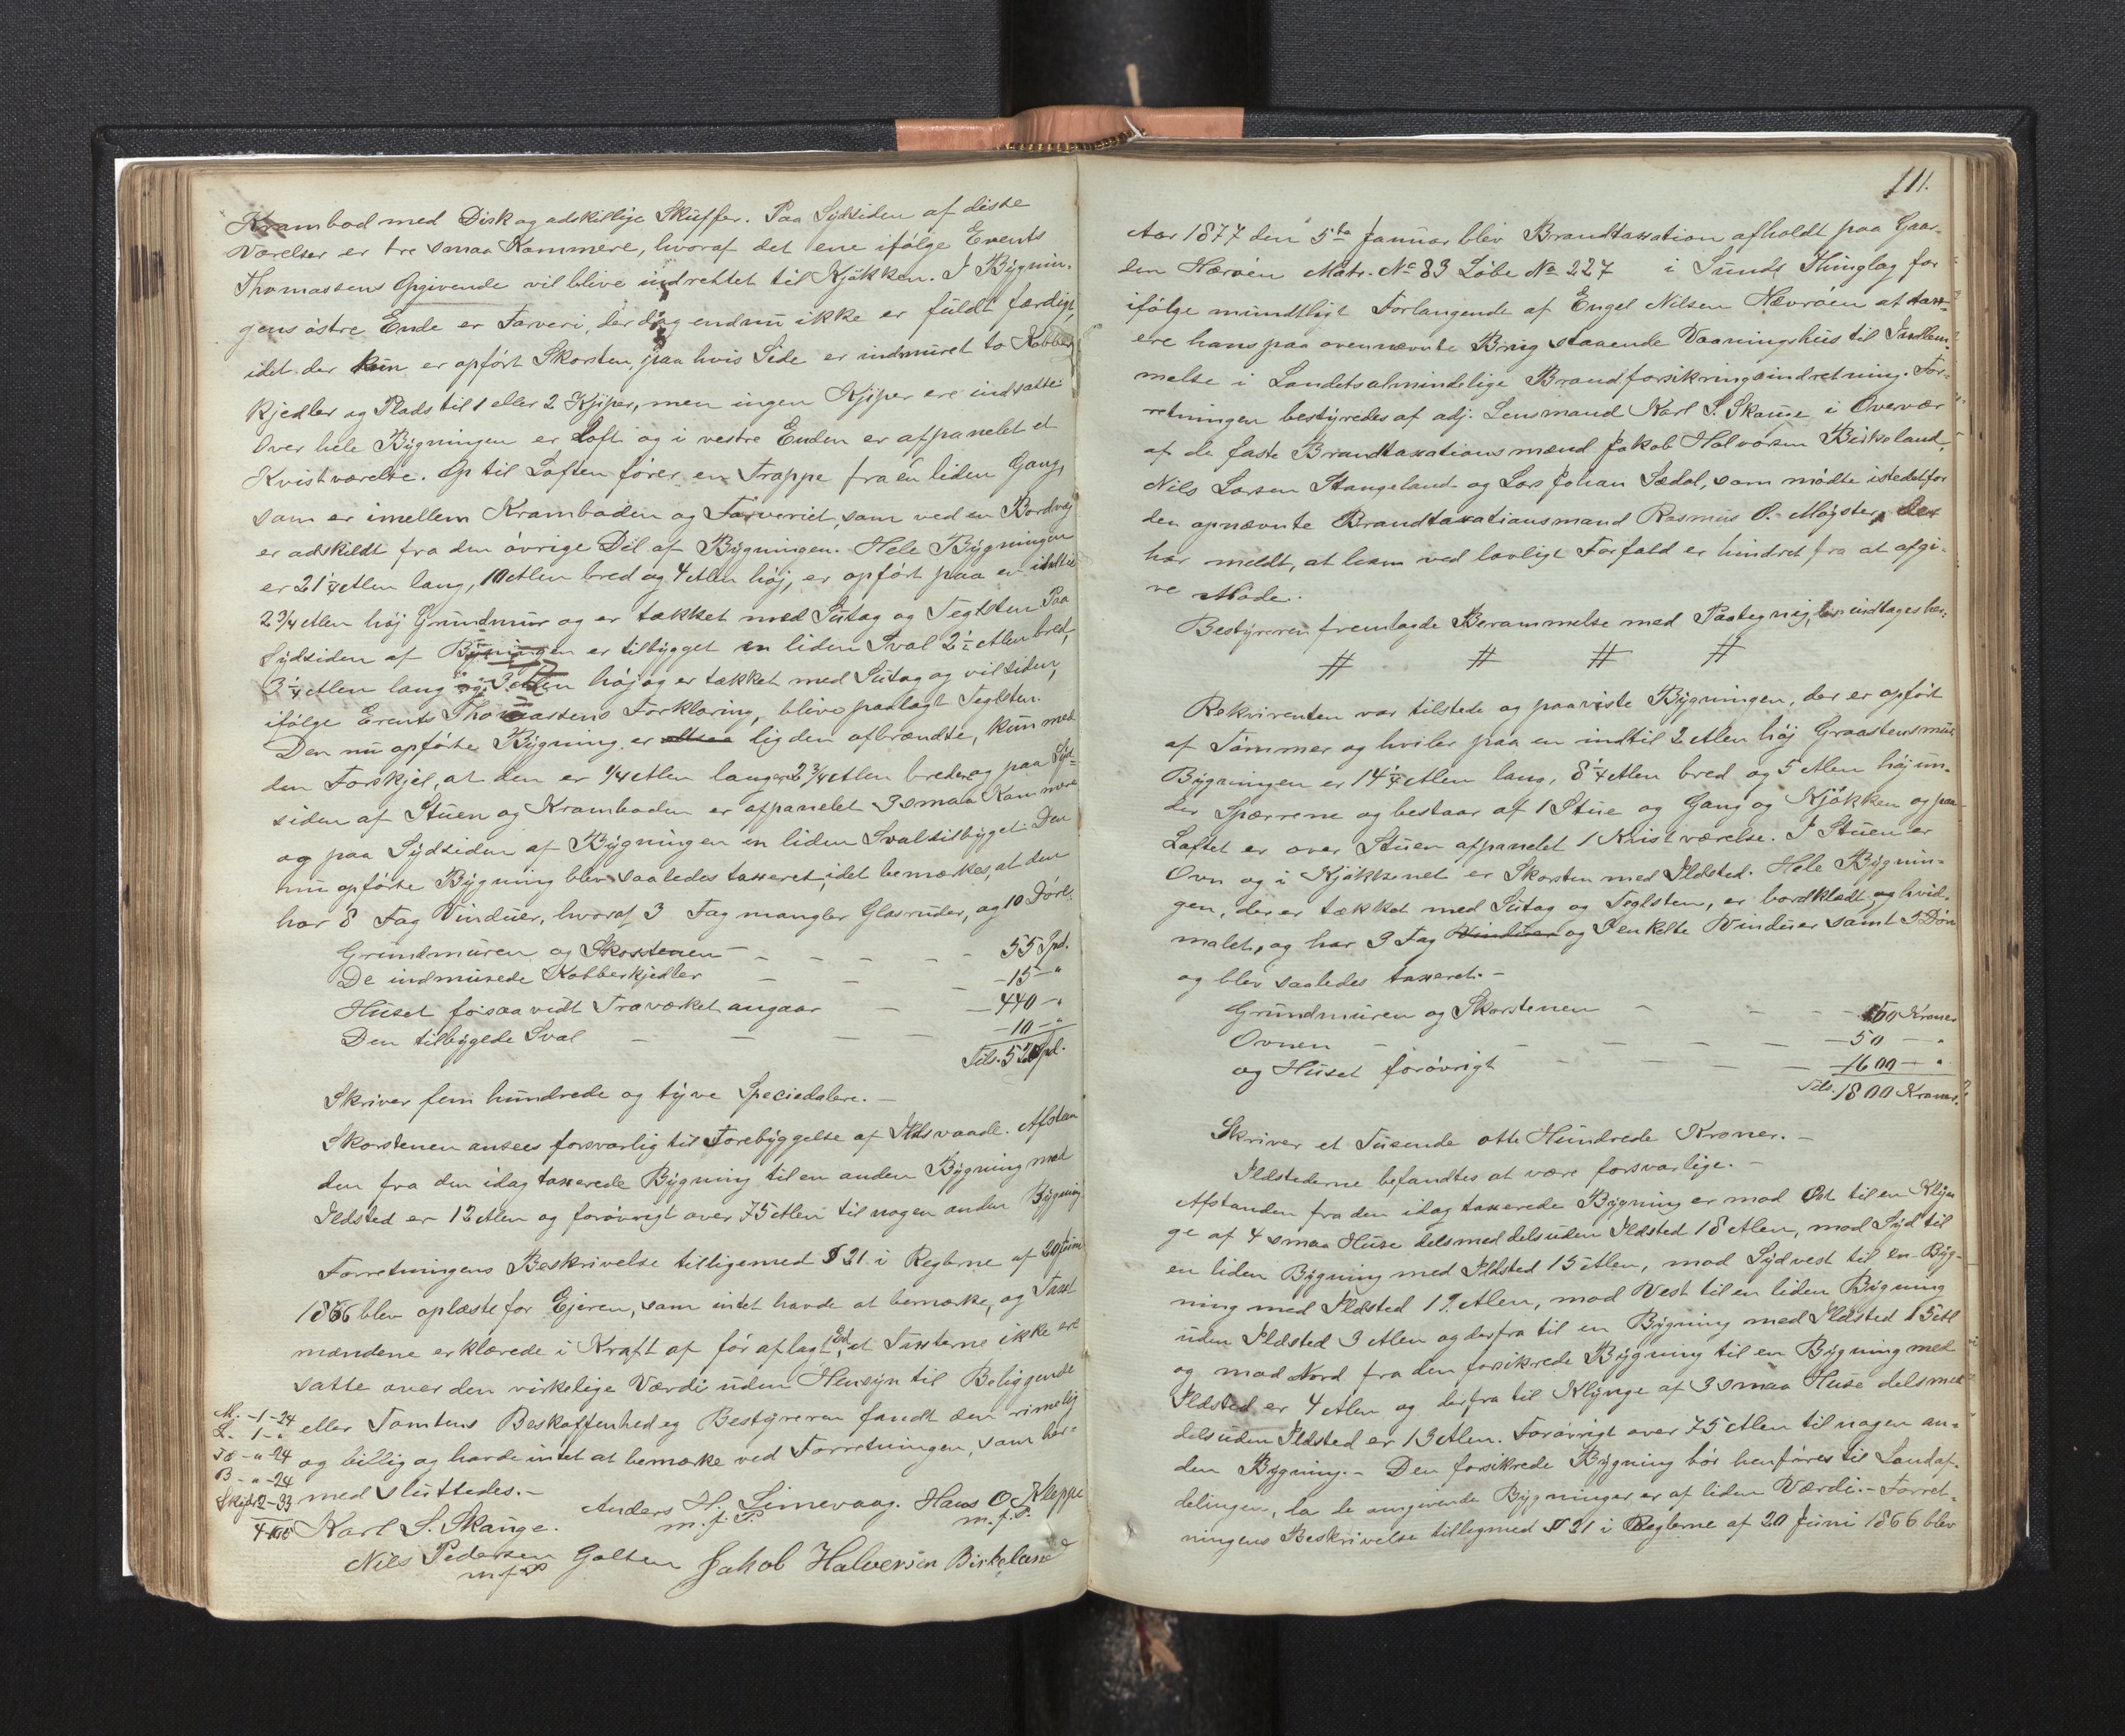 Krambod med Disk og adskillige Skuffer. Paa Sydsiden af disse
Værelser er tre smaa Kammere, hvoraf det ene ifølge Erents
Thomassens Opgivende vil blive indrettet til Kjøkken. I Bygnin-
gens østre Ende er Farveri, der dog endnu ikke er fuldt færdigt,
idet der kun er opført Skorsten, paa hvis Side er indmuret to Kobber
kjedler og Plads til 1 eller 2 Kyper, men ingen Kyper ere indsatte.
Over hele Bygningen er Loft og i vestre Enden er afpanelet et
Kvistværelse. Op til Loften fører en Trappe fra en liden Gang,
som er imellem Kramboden og Farveriet, som ved en Bordvæg
er adskildt fra den øvrige Del af Bygningen. Hele Bygningen
er 21 1/4 Alen lang, 10 Alen bred og 4 Alen høj, er opført paa en indtil
2 3/4 Alen høj Grundmur og er tækket med Sutag og Teglsten. Paa
Sydsiden af Bygningen er tilbygget en liden Sval 2 1/2 Alen bred,
3 1/4 Alen lang og 3 Alen høj og er tækket med Sutag og vil siden,
ifølge Erents Thomassens Forklaring, blive paalagt Teglsten.
Den nu opførte Bygning er altsaa lig den afbrændte, kun med
den Forskjel, at den er 1/4 Alen længere 2 3/4 Alen bredere og paa Syd-
siden af Stuen og Kramboden er afpanelet 3 smaa Kammere
og paa Sydsiden af Bygningen en liden Sval tilbygget. Den
nu opførte Bygning blev saaledes taxeret, idet bemærkes, at den
har 8 Fag Vinduer, hvoraf 3 Fag mangler Glasruder, og 10 Døre.
Grundmuren og Skorstenen - - - - - 55 Spd.
De indmurede Kobberkjedler - - - 15 - "
Huset forsaavidt Træværket angaar - - 440 - "
Den tilbygede Sval - - - - 10 - "
Tils. 520 Spd.
Skriver fem hundrede og tyve Speciedalere. -
Skorstenen ansees forsvarlig til Forebyggelse af Ildsvaade. Afstan
den fra den idag taxerede Bygning til en anden Bygning med
Ildsted er 12 Alen og forøvrigt over 75 Alen til nogen anden Bygning
Forretningens Beskrivelse tilligemed § 21 i Reglerne af 20 Juni
1866 blev oplæste for Ejeren, som intet havde at bemærke, og Taxt
mændene erklærede i Kraft af før aflagt Ed, at Taxterne ikke ere
satte over den virkelige Værdi uden Hensyn til Beliggende
eller Tomtens Beskaffenhed og Bestyreren fandt den rimelig
og billig og havde intet at bemærke ved Forretningen, som her-
med sluttedes. -
M. - 1 - 24
L. 1 - "
Tæ - " - 24
B - " - 24
Skyds 2 - 93
Karl S. Skauge. Anders H. Limevaag. Hans O. Kleppe
m. f. P. m. f. P.
Nils Pedersen Golten Jakob Halvorsen Birkeland
m f P
111.
Aar 1877 den 5te Januar blev Brandtaxation afholdt paa Gaar-
den Nævrøen Matr. No 83 Løbe No 227 i Sunds Thinglag for
ifølge mundtligt Forlangende af Engel Nilsen Nævrøen at tax-
ere hans paa ovennævnte Brug staaende Vaaningshus til Indlem-
melse i Landets almindelige Brandforsikringsindretning. For-
retningen bestyredes af adj. Lensmand Karl S. Skauge i Overvær
af de faste Brandtaxationsmænd Jakob Halvorsen Birkeland,
Nils Larsen Stangeland og Lars Johan Sædal, som mødte istedetfor
den opnævnte Brandtaxationsmand Rasmus O. Møgster, der
har meldt, at han ved lovligt Forfald er hindret fra at afgi-
ve Møde.
Bestyreren fremlagde Berammelse med Paategnig, der indtages her:
# # # #
Rekvirenten var tilstede og paaviste Bygningen, der er opført
af Tømmer og hviler paa en indtil 2 Alen høj Graastensmur.
Bygningen er 14 1/4 Alen lang, 8 1/4 Alen bred og 5 Alen høj un-
der Spærrene og bestaar af 1 Stue og Gang og Kjøkken og paa
Loftet er over Stuen afpanelet 1 Kvistværelse. I Stuen er
Ovn og i Kjøkkenet er Skorsten med Ildsted. Hele Bygnin-
gen, der er tækket med Sutag og Teglsten, er bordklædt og hvid-
malet, og har 3 Fag Vinduer og 5 enkelte Vinduer samt 5 Døre
og blev saaledes taxeret. -
Grundmuren og Skorstenen - - - - 150 Kroner
Ovnen - - - - - - 50 - "
og Huset forøvrigt - - - - 1600 - "
Tils. 1800 Kroner.
Skriver et Tusende otte Hundrede Kroner. -
Ildstederne befandtes at være forsvarlige. -
Afstanden fra den idag taxerede Bygning er mod Øst til en Klyn
ge af 4 smaa Huse dels med dels uden Ildsted 18 Alen, mod Syd til
en liden Bygning med Ildsted 15 Alen, mod Sydvest til en Byg-
ning med Ildsted 19 Alen, mod Vest til en liden Bygning
uden Ildsted 3 Alen og derfra til en Bygning med Ildsted 15 Al
og mod Nord fra den forsikrede Bygning til en Bygning med
Ildsted er 4 Alen og derfra til Klynge af 3 smaa Huse dels med
dels uden Ildsted er 13 Alen. Forøvrigt over 75 Alen til nogen an-
den Bygning. - Den forsikrede Bygning bør henføres til Landaf-
delingen, da de omgivende Bygninger er af liden Værdi. - Forret-
ningens Beskrivelse tilligmed § 21 i Reglerne af 20 Juni 1866 blev